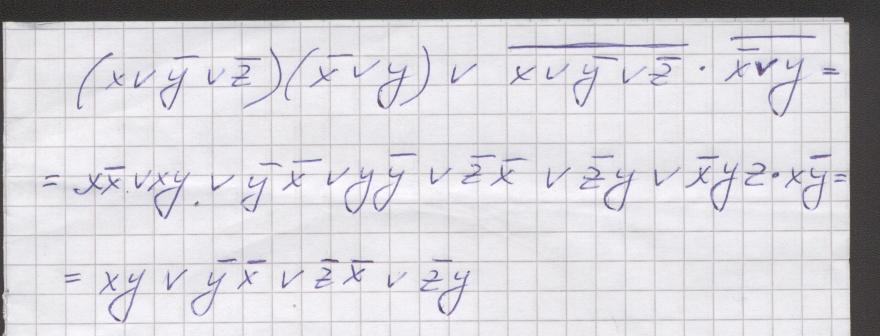 (x∨y̅∨z̅)(x̅∨y) ∨ \overline{x∨y̅∨z̅} · \overline{x̅∨y} =
= xx̅∨xy ∨ y̅x̅ ∨ yy̅ ∨ z̅x̅ ∨ z̅y ∨ x̅yz·xy̅ =
= xy ∨ y̅x̅ ∨ z̅x̅ ∨ z̅y